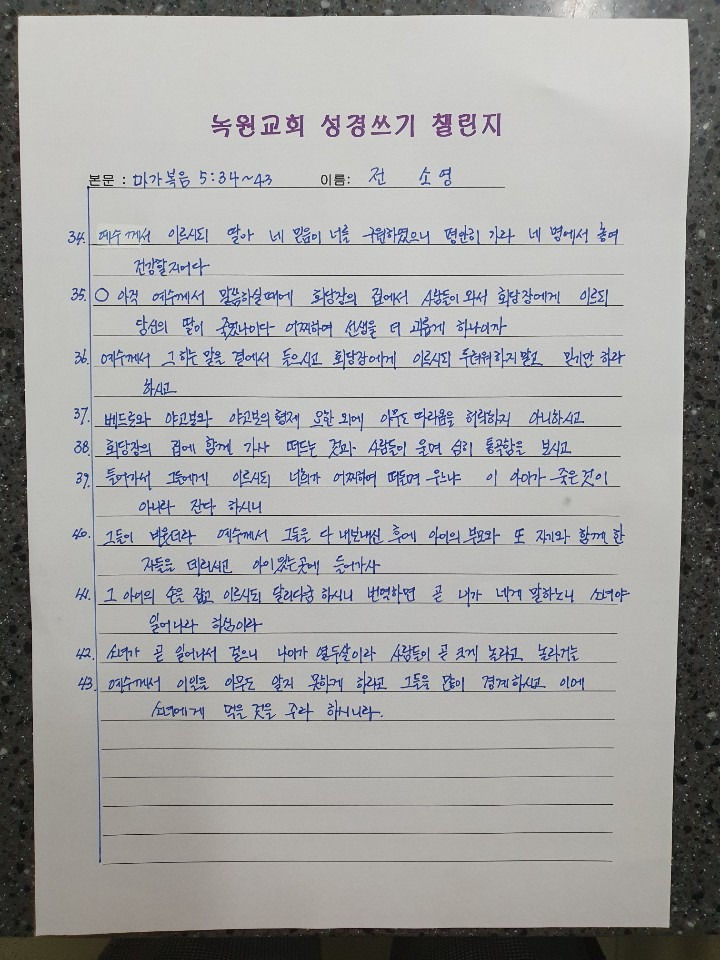 녹원교회 성경쓰기 챌린지
본문 : 마가복음 5:34~43 이름: 전 소영
34. 예수께서 이르시되 딸아 네 믿음이 너를 구원하였으니 평안히 가라 네 병에서 놓여
건강할지어다
35. ○ 아직 예수께서 말씀하실 때에 회당장의 집에서 사람들이 와서 회당장에게 이르되
당신의 딸이 죽었나이다 어찌하여 선생을 더 괴롭게 하나이까
36. 예수께서 그 하는 말을 곁에서 들으시고 회당장에게 이르시되 두려워하지 말고 믿기만 하라
하시고
37. 베드로와 야고보와 야고보의 형제 요한 외에 아무도 따라옴을 허락하지 아니하시고
38. 회당장의 집에 함께 가사 떠드는 것과 사람들이 울며 심히 통곡함을 보시고
39. 들어가서 그들에게 이르시되 너희가 어찌하여 떠들며 우느냐 이 아이가 죽은 것이
아니라 잔다 하시니
40. 그들이 비웃더라 예수께서 그들을 다 내보내신 후에 아이의 부모와 또 자기와 함께 한
자들을 데리시고 아이 있는 곳에 들어가사
41. 그 아이의 손을 잡고 이르시되 달리다굼 하시니 번역하면 곧 내가 네게 말하노니 소녀야
일어나라 하심이라
42. 소녀가 곧 일어나서 걸으니 나이가 열두살이라 사람들이 곧 크게 놀라고 놀라거늘
43. 예수께서 이 일을 아무도 알지 못하게 하라고 그들을 많이 경계하시고 이에
소녀에게 먹을 것을 주라 하시니라.